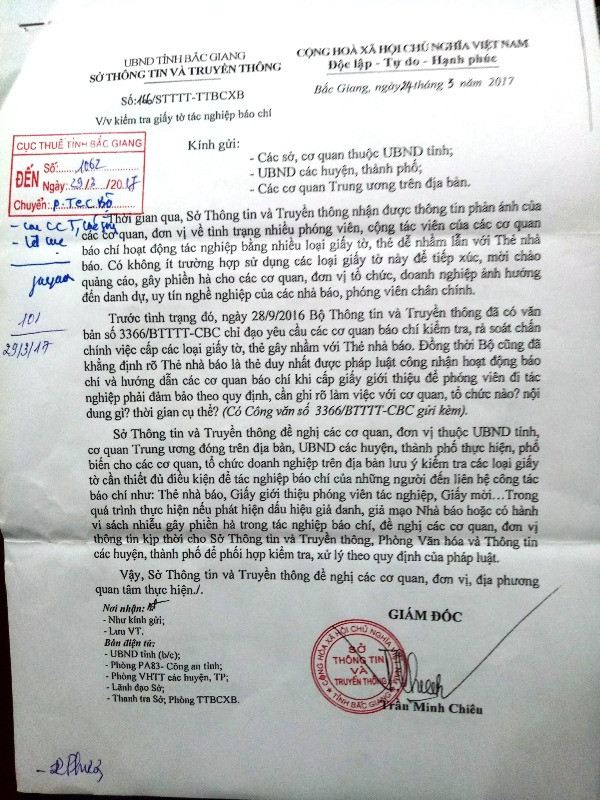 UBND TỈNH BẮC GIANG
SỞ THÔNG TIN VÀ TRUYỀN THÔNG
CỘNG HOÀ XÃ HỘI CHỦ NGHĨA VIỆT NAM
Độc lập - Tự do - Hạnh phúc
Số:166/STTTT-TTBCXB
V/v kiểm tra giấy tờ tác nghiệp báo chí
Bắc Giang, ngày 24 tháng 3 năm 2017
CỤC THUẾ TỈNH BẮC GIANG
ĐẾN
Số: 1062
Ngày: 29/3/2017
Chuyển: P.TCCBộ
Kính gửi:
- Các sở, cơ quan thuộc UBND tỉnh;
- UBND các huyện, thành phố;
- Các cơ quan Trung ương trên địa bàn.
Thời gian qua, Sở Thông tin và Truyền thông nhận được thông tin phản ánh của
các cơ quan, đơn vị về tình trạng nhiều phóng viên, cộng tác viên của các cơ quan
báo chí hoạt động tác nghiệp bằng nhiều loại giấy tờ, thẻ dễ nhầm lẫn với Thẻ nhà
báo. Có không ít trường hợp sử dụng các loại giấy tờ này để tiếp xúc, mời chào
quảng cáo, gây phiền hà cho các cơ quan, đơn vị tổ chức, doanh nghiệp ảnh hưởng
đến danh dự, uy tín nghề nghiệp của các nhà báo, phóng viên chân chính.
101
29/3/17
Trước tình trạng đó, ngày 28/9/2016 Bộ Thông tin và Truyền thông đã có văn
bản số 3366/BTTTT-CBC chỉ đạo yêu cầu các cơ quan báo chí kiểm tra, rà soát chấn
chỉnh việc cấp các loại giấy tờ, thẻ gây nhầm với Thẻ nhà báo. Đồng thời Bộ cũng đã
khẳng định rõ Thẻ nhà báo là thẻ duy nhất được pháp luật công nhận hoạt động báo
chí và hướng dẫn các cơ quan báo chí khi cấp giấy giới thiệu để phóng viên đi tác
nghiệp phải đảm bảo theo quy định, cần ghi rõ làm việc với cơ quan, tổ chức nào? nội
dung gì? thời gian cụ thể? (Có Công văn số 3366/BTTTT-CBC gửi kèm).
Sở Thông tin và Truyền thông đề nghị các cơ quan, đơn vị thuộc UBND tỉnh,
cơ quan Trung ương đóng trên địa bàn, UBND các huyện, thành phố thực hiện, phổ
biến cho các cơ quan, tổ chức doanh nghiệp trên địa bàn lưu ý kiểm tra các loại giấy
tờ cần thiết đủ điều kiện để tác nghiệp báo chí của những người đến liên hệ công tác
báo chí như: Thẻ nhà báo, Giấy giới thiệu phóng viên tác nghiệp, Giấy mời…Trong
quá trình thực hiện nếu phát hiện dấu hiệu giả danh, giả mạo Nhà báo hoặc có hành
vi sách nhiễu gây phiền hà trong tác nghiệp báo chí, đề nghị các cơ quan, đơn vị
thông tin kịp thời cho Sở Thông tin và Truyền thông, Phòng Văn hóa và Thông tin
các huyện, thành phố để phối hợp kiểm tra, xử lý theo quy định của pháp luật.
Vậy, Sở Thông tin và Truyền thông đề nghị các cơ quan, đơn vị, địa phương
quan tâm thực hiện./.
Nơi nhận:
- Như kính gửi;
- Lưu VT.
Bản điện tử:
- UBND tỉnh (b/c);
- Phòng PA83- Công an tỉnh;
- Phòng VHTT các huyện, TP;
- Lãnh đạo Sở;
- Thanh tra Sở; Phòng TTBCXB.
GIÁM ĐỐC
CỘNG HÒA XÃ HỘI CHỦ NGHĨA VIỆT NAM
SỞ
THÔNG TIN
VÀ
TRUYỀN THÔNG
TỈNH BẮC GIANG
Trần Minh Chiêu